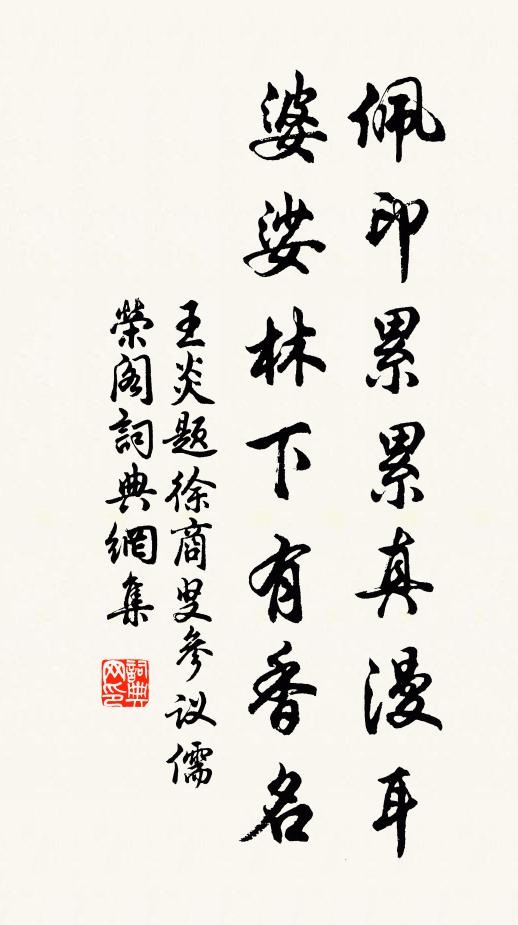 佩印累累真漫耳
婆娑林下有香名
王炎题徐商叟参议儒
荣阁詞典網集
詞典网印